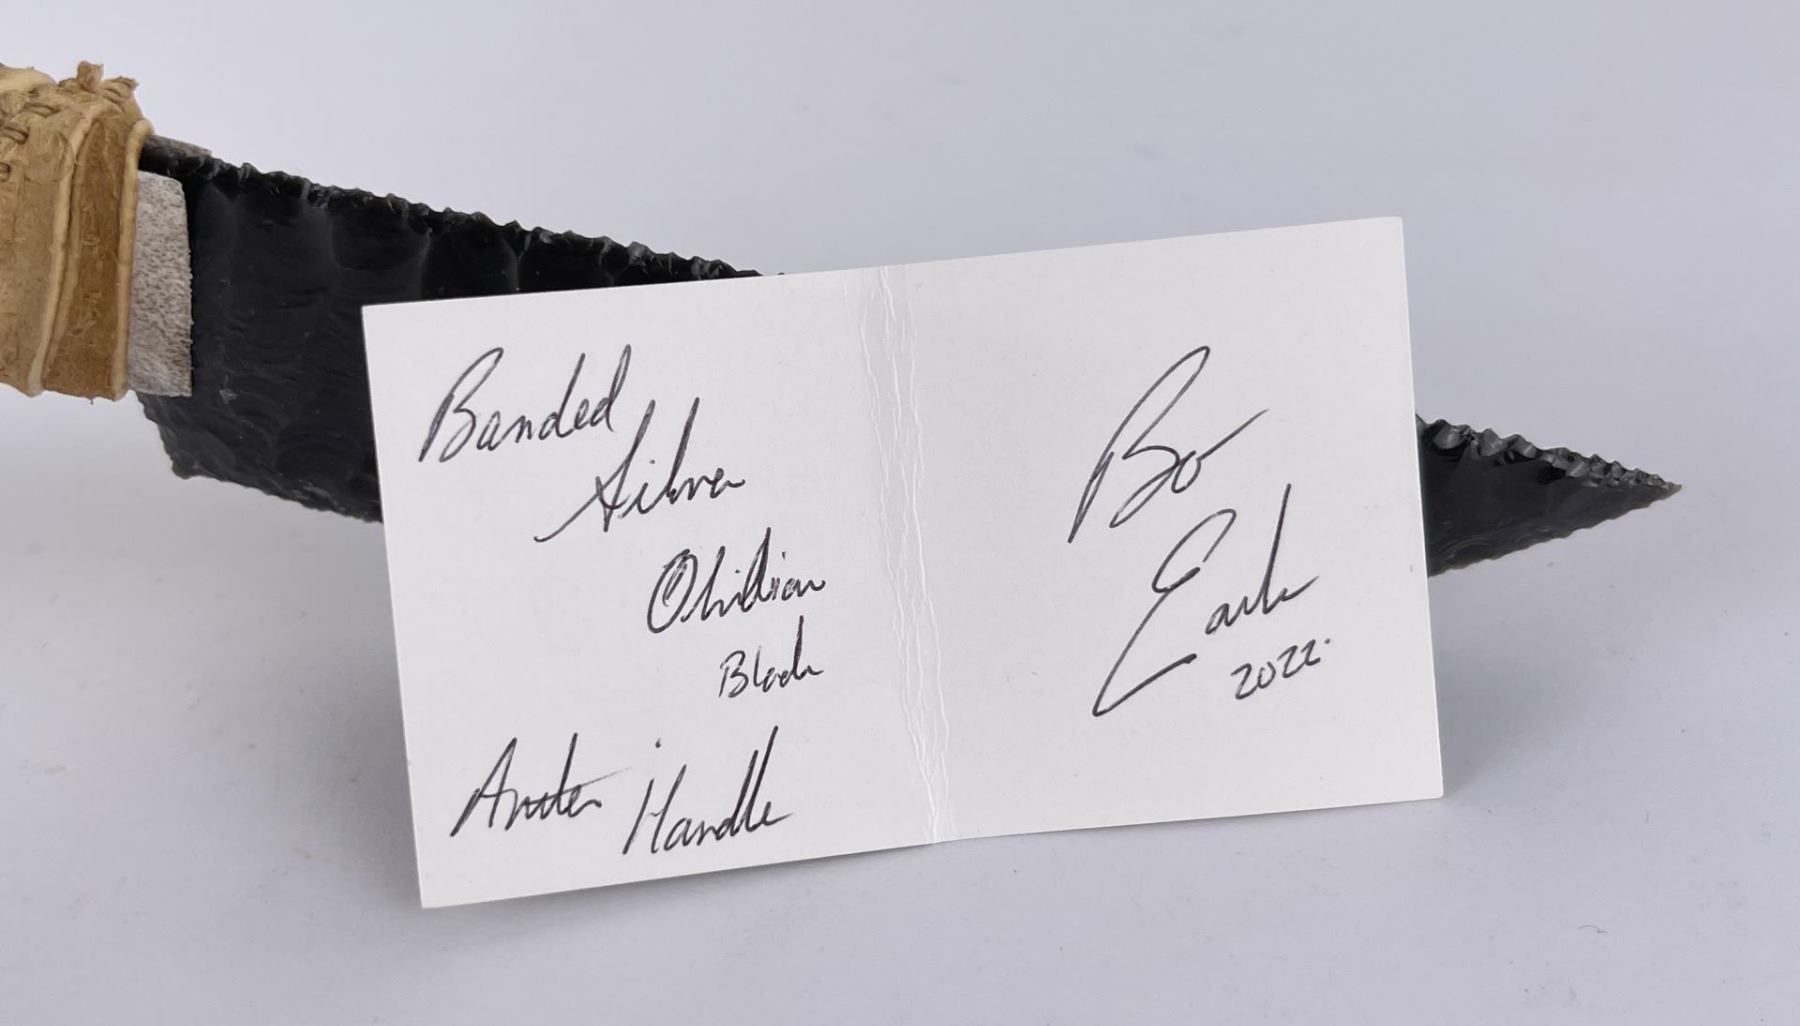 Banded
Silver
Obsidian
Blade
Antler Handle
Bo
Earl
2022.